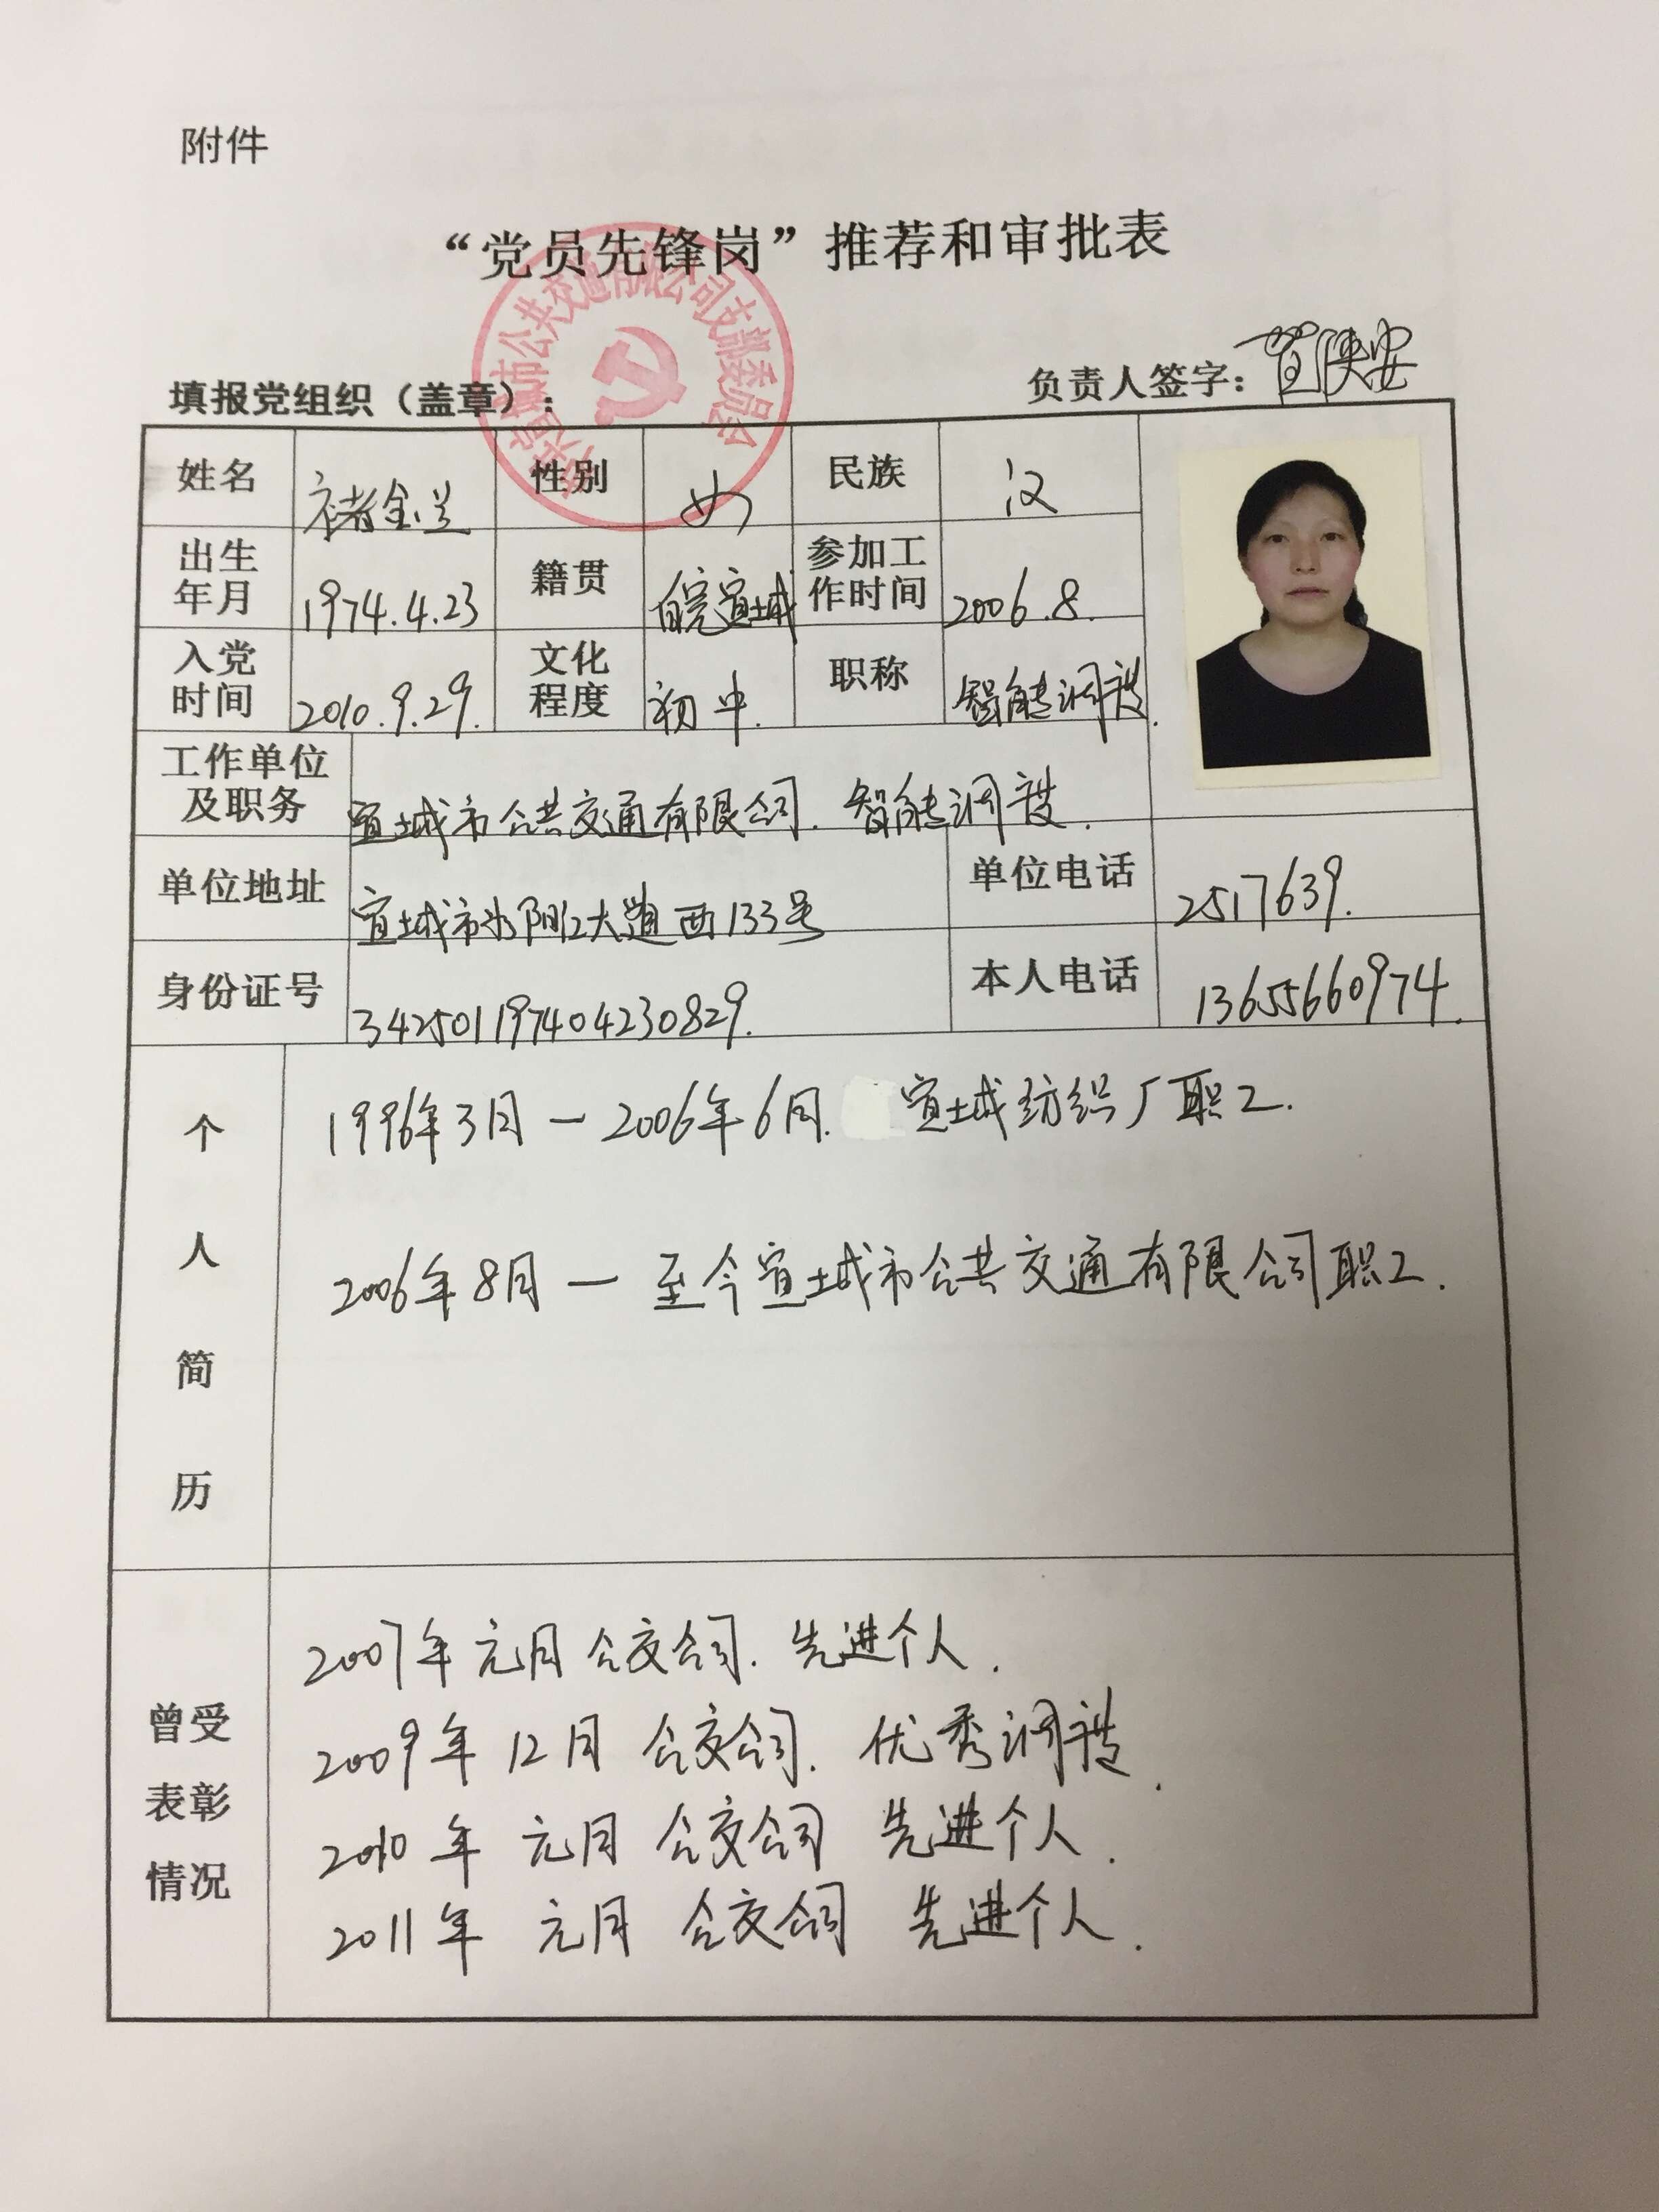 附件
“党员先锋岗”推荐和审批表
中共宣城市公共交通有限公司支部委员会
填报党组织（盖章）： 负责人签字：
姓名 褚金兰 性别 女 民族 汉
出生年月 1974.4.23 籍贯 皖宣城 参加工作时间 2006.8.
入党时间 2010.9.29. 文化程度 初中. 职称 智能调度.
工作单位及职务 宣城市公共交通有限公司. 智能调度.
单位地址 宣城市水阳江大道西133号 单位电话 2517639.
身份证号 342501197404230829. 本人电话 13655660974.
个人简历
1996年3月－2006年6月. 宣城纺织厂职工.
2006年8月－至今宣城市公共交通有限公司职工.
曾受表彰情况
2007年元月公交公司. 先进个人.
2009年12月公交公司. 优秀调度.
2010年 元月 公交公司 先进个人.
2011年 元月 公交公司 先进个人.